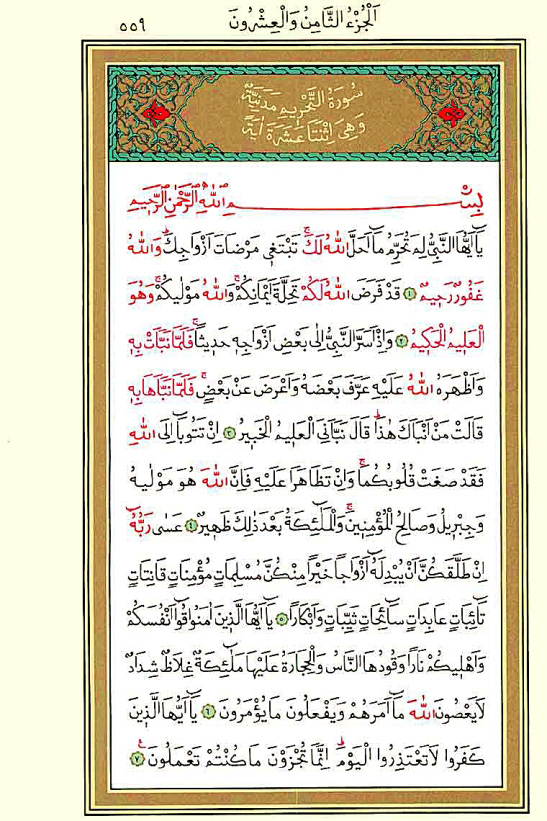 اَلْجُزْءُ الثَّامِنُ وَالْعِشْرُونَ
٥٥٩
سُورَةُ التَّحْرِيمِ مَدَنِيَّةٌ
وَهِيَ اِثْنَتَا عَشْرَةَ اٰيَةً
بِسْمِ اللّٰهِ الرَّحْمٰنِ الرَّحِيمِ
يَٓا اَيُّهَا النَّبِيُّ لِمَ تُحَرِّمُ مَٓا اَحَلَّ اللّٰهُ لَكَۚ تَبْتَغِي مَرْضَاتَ اَزْوَاجِكَۜ وَاللّٰهُ
غَفُورٌ رَحِيمٌ ﴿١﴾ قَدْ فَرَضَ اللّٰهُ لَكُمْ تَحِلَّةَ اَيْمَانِكُمْۚ وَاللّٰهُ مَوْلٰيكُمْۚ وَهُوَ
الْعَلِيمُ الْحَكِيمُ ﴿٢﴾ وَاِذْ اَسَرَّ النَّبِيُّ اِلٰى بَعْضِ اَزْوَاجِهِ حَدِيثًاۚ فَلَمَّا نَبَّاَتْ بِهِ
وَاَظْهَرَهُ اللّٰهُ عَلَيْهِ عَرَّفَ بَعْضَهُ وَاَعْرَضَ عَنْ بَعْضٍۚ فَلَمَّا نَبَّاَهَا بِهِ
قَالَتْ مَنْ اَنْبَاَكَ هٰذَاۜ قَالَ نَبَّاَنِيَ الْعَلِيمُ الْخَبِيرُ ﴿٣﴾ اِنْ تَتُوبَٓا اِلَى اللّٰهِ
فَقَدْ صَغَتْ قُلُوبُكُمَاۚ وَاِنْ تَظَاهَرَا عَلَيْهِ فَاِنَّ اللّٰهَ هُوَ مَوْلٰيهُ
وَجِبْرِيلُ وَصَالِحُ الْمُؤْمِنِينَۚ وَالْمَلٰٓئِكَةُ بَعْدَ ذٰلِكَ ظَهِيرٌ ﴿٤﴾ عَسٰى رَبُّهُٓ
اِنْ طَلَّقَكُنَّ اَنْ يُبْدِلَهُٓ اَزْوَاجًا خَيْرًا مِنْكُنَّ مُسْلِمَاتٍ مُؤْمِنَاتٍ قَانِتَاتٍ
تَٓائِبَاتٍ عَابِدَاتٍ سَٓائِحَاتٍ ثَيِّبَاتٍ وَاَبْكَارًا ﴿٥﴾ يَٓا اَيُّهَا الَّذِينَ اٰمَنُوا قُٓوا اَنْفُسَكُمْ
وَاَهْلِيكُمْ نَارًا وَقُودُهَا النَّاسُ وَالْحِجَارَةُ عَلَيْهَا مَلٰٓئِكَةٌ غِلَاظٌ شِدَادٌ
لَا يَعْصُونَ اللّٰهَ مَٓا اَمَرَهُمْ وَيَفْعَلُونَ مَا يُؤْمَرُونَ ﴿٦﴾ يَٓا اَيُّهَا الَّذِينَ
كَفَرُوا لَا تَعْتَذِرُوا الْيَوْمَۜ اِنَّمَا تُجْزَوْنَ مَا كُنْتُمْ تَعْمَلُونَ۟ ﴿٧﴾